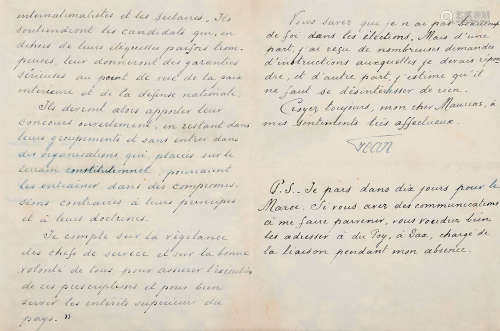 internationalistes et les sectaires. Ils
soutiendront les candidats qui, en
dehors de leurs étiquettes parfois trom-
peuses, leur donneront des garanties
sérieuses au point de vue de la paix
intérieure et de la défense nationale.
Ils devront alors apporter leur
concours ouvertement, en restant dans
leurs groupements et sans entrer dans
des organisations qui, placées sur le
terrain constitutionnel pourraient
les entraîner dans des compromis-
sions contraires à leurs principes
et à leurs doctrines.
Je compte sur la vigilance
des chefs de service et sur la bonne
volonté de tous, pour assurer l'exécution
de ces prescriptions et pour bien
servir les intérêts supérieurs du
pays. »
Vous savez que je n'ai pas beaucoup
de foi dans les élections. Mais d'une
part, j'ai reçu de nombreuses demandes
d'instructions auxquelles je devais répon-
dre, et d'autre part, j'estime qu'il
ne faut se désintéresser de rien.
Croyez toujours, mon cher Maurras, à
mes sentiments très affectueux.
Jean
P.S.- Je pars dans dix jours pour le
Maroc. Si vous avez des communications
à me faire parvenir, vous voudrez bien
les adresser à du Poy, à Dax, chargé de
la liaison pendant mon absence.